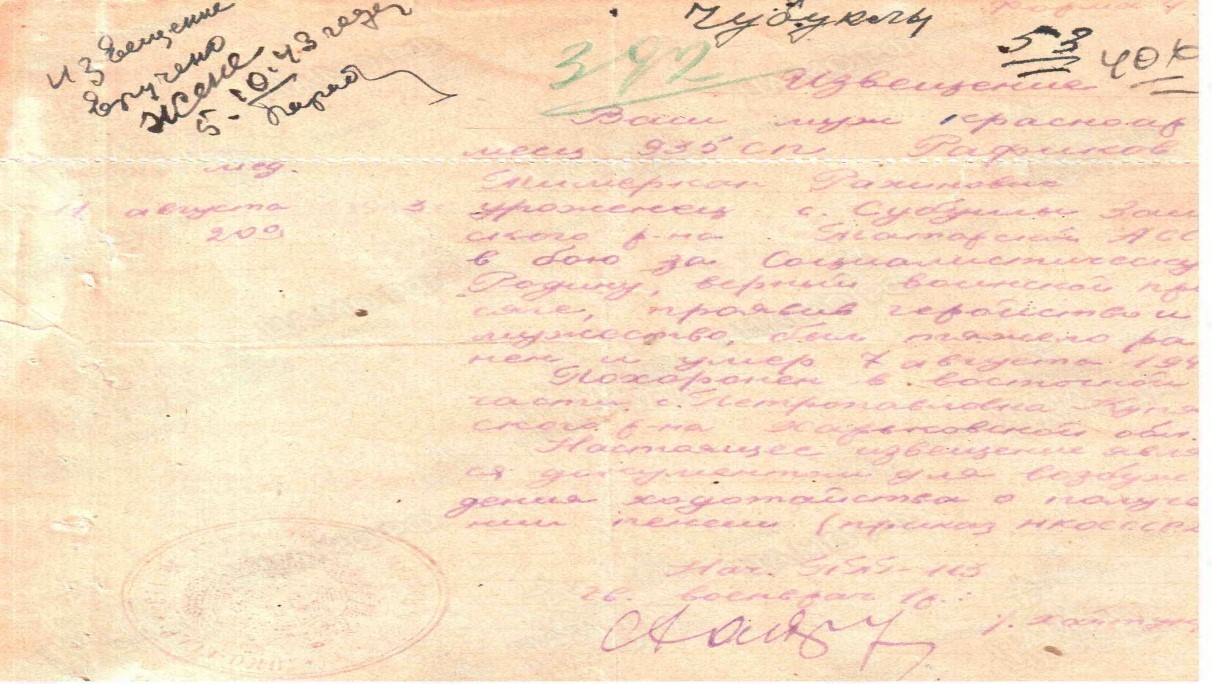 Извещение
вручено
жене
5-10-43 года
Чубуклы
Форма 4
392
53
40к
Извещение
Ваш муж красноар
меец 935 сп Рафиков
Тимеркан Рахимович
мед.
11 августа 3
209
уроженец с. Субуклы Заин
ского р-на Татарской АСС
в бою за Социалистическую
Родину, верный воинской при
сяге, проявив геройство и
мужество, был тяжело ра
нен и умер 7 августа 194
Похоронен в восточной
части с. Петропавловка Купя
ского р-на Харьковской обл.
Настоящее извещение явля
ся документом для возбуж
дения ходатайства о получе
нии пенсии (приказ НКО СССР
Нач. ППГ-113
гв. военврач 1р.